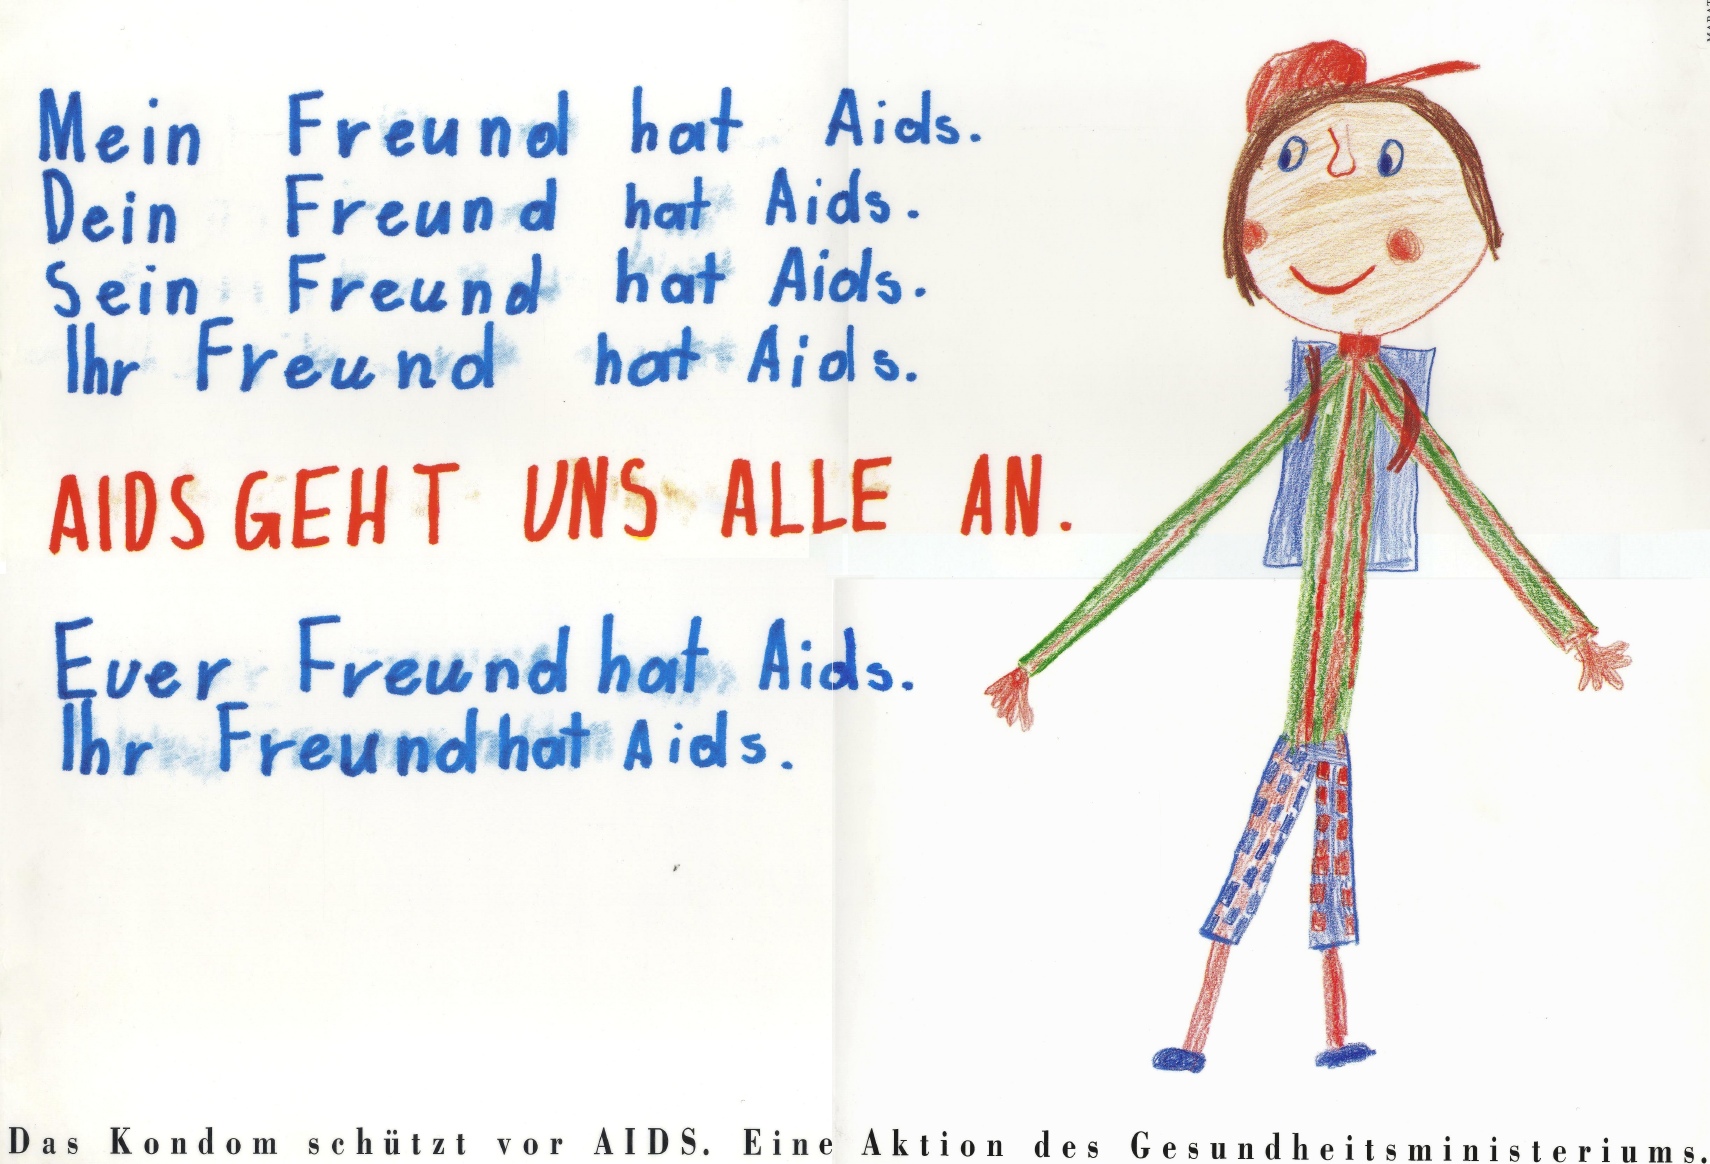 Mein Freund hat Aids.
Dein Freund hat Aids.
Sein Freund hat Aids.
Ihr Freund hat Aids.
AIDS GEHT UNS ALLE AN.
Euer Freund hat Aids.
Ihr Freund hat Aids.
Das Kondom schützt vor AIDS. Eine Aktion des Gesundheitsministeriums.